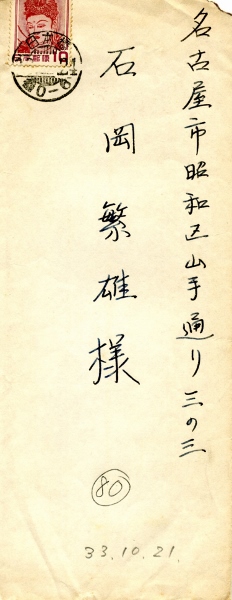 名古屋市昭和区山手通り三の三
石岡繁雄様
80
33.10.21.
10